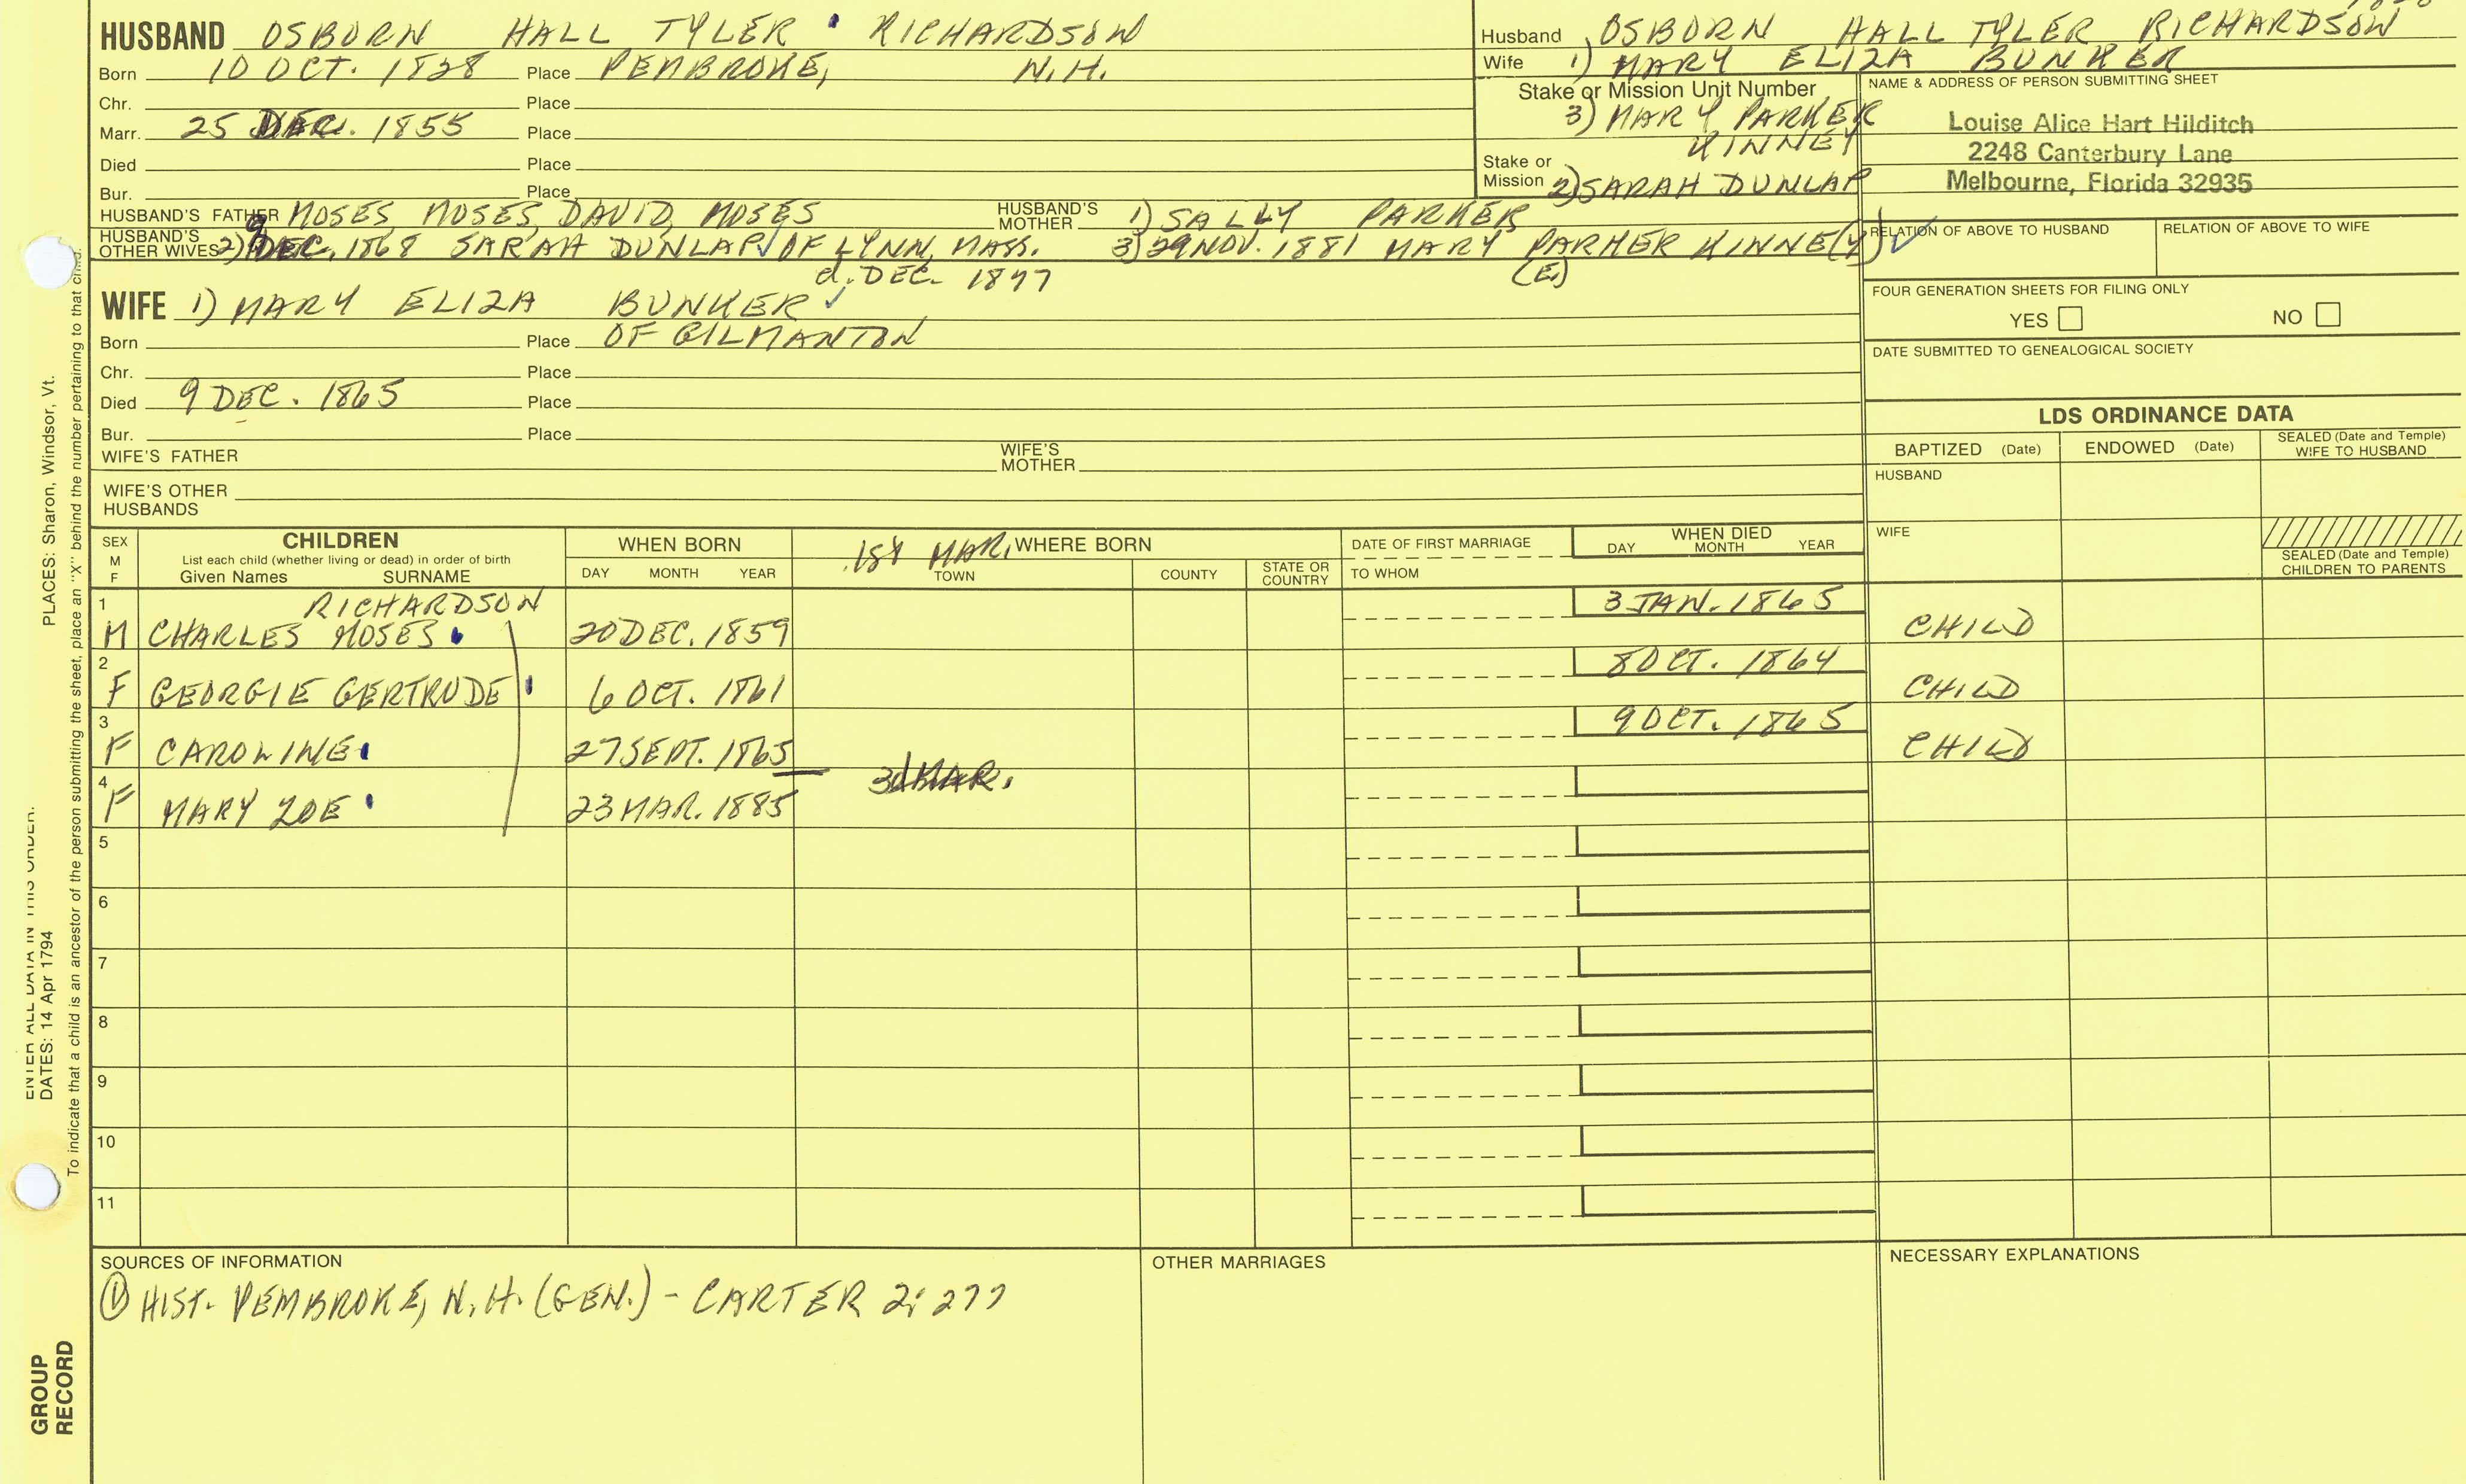 HUSBAND OSBORN HALL TYLER RICHARDSON
Born 10 OCT. 1828 Place PEMBROKE, N.H.
Chr. Place
Marr. 25 DEC. 1855 Place
Died Place
Bur. Place
HUSBAND'S FATHER MOSES, MOSES, DAVID, MOSES HUSBAND'S MOTHER 1) SALLY PARKER
HUSBAND'S OTHER WIVES 2) 9 DEC. 1868 SARAH DUNLAP ✓ OF LYNN, MASS. 3) 29 NOV. 1881 MARY PARKER KINNE(Y) ✓
d. DEC. 1877 (E)
Husband OSBORN HALL TYLER RICHARDSON
Wife 1) MARY ELIZA BUNKER
Stake or Mission Unit Number
3) MARY PARKER
KINNEY
Stake or Mission 2) SARAH DUNLAP
NAME & ADDRESS OF PERSON SUBMITTING SHEET
Louise Alice Hart Hilditch
2248 Canterbury Lane
Melbourne, Florida 32935
RELATION OF ABOVE TO HUSBAND RELATION OF ABOVE TO WIFE
FOUR GENERATION SHEETS FOR FILING ONLY
YES NO
DATE SUBMITTED TO GENEALOGICAL SOCIETY
WIFE 1) MARY ELIZA BUNKER ✓
Born Place OF GILMANTON
Chr. Place
Died 9 DEC. 1865 Place
Bur. Place
WIFE'S FATHER WIFE'S MOTHER
WIFE'S OTHER HUSBANDS
LDS ORDINANCE DATA
BAPTIZED (Date) ENDOWED (Date) SEALED (Date and Temple) WIFE TO HUSBAND
HUSBAND
WIFE
SEALED (Date and Temple) CHILDREN TO PARENTS
SEX M F CHILDREN WHEN BORN 1st MAR. WHERE BORN DATE OF FIRST MARRIAGE WHEN DIED
List each child (whether living or dead) in order of birth
Given Names SURNAME DAY MONTH YEAR TOWN COUNTY STATE OR COUNTRY TO WHOM DAY MONTH YEAR
1 RICHARDSON 3 JAN. 1865
M CHARLES MOSES 20 DEC. 1859 CHILD
2 8 OCT. 1864
F GEORGIE GERTRUDE 6 OCT. 1861 CHILD
3 9 OCT. 1865
F CAROLINE 27 SEPT. 1865 CHILD
4 3d MAR.
F MARY ZOE 23 MAR. 1885
5
6
7
8
9
10
11
SOURCES OF INFORMATION OTHER MARRIAGES NECESSARY EXPLANATIONS
① HIST. PEMBROKE, N.H. (GEN.) - CARTER 2: 277
ENTER ALL DATA IN THIS ORDER:
DATES: 14 Apr 1794 PLACES: Sharon, Windsor, Vt.
To indicate that a child is an ancestor of the person submitting the sheet, place an "X" behind the number pertaining to that child.
GROUP
RECORD